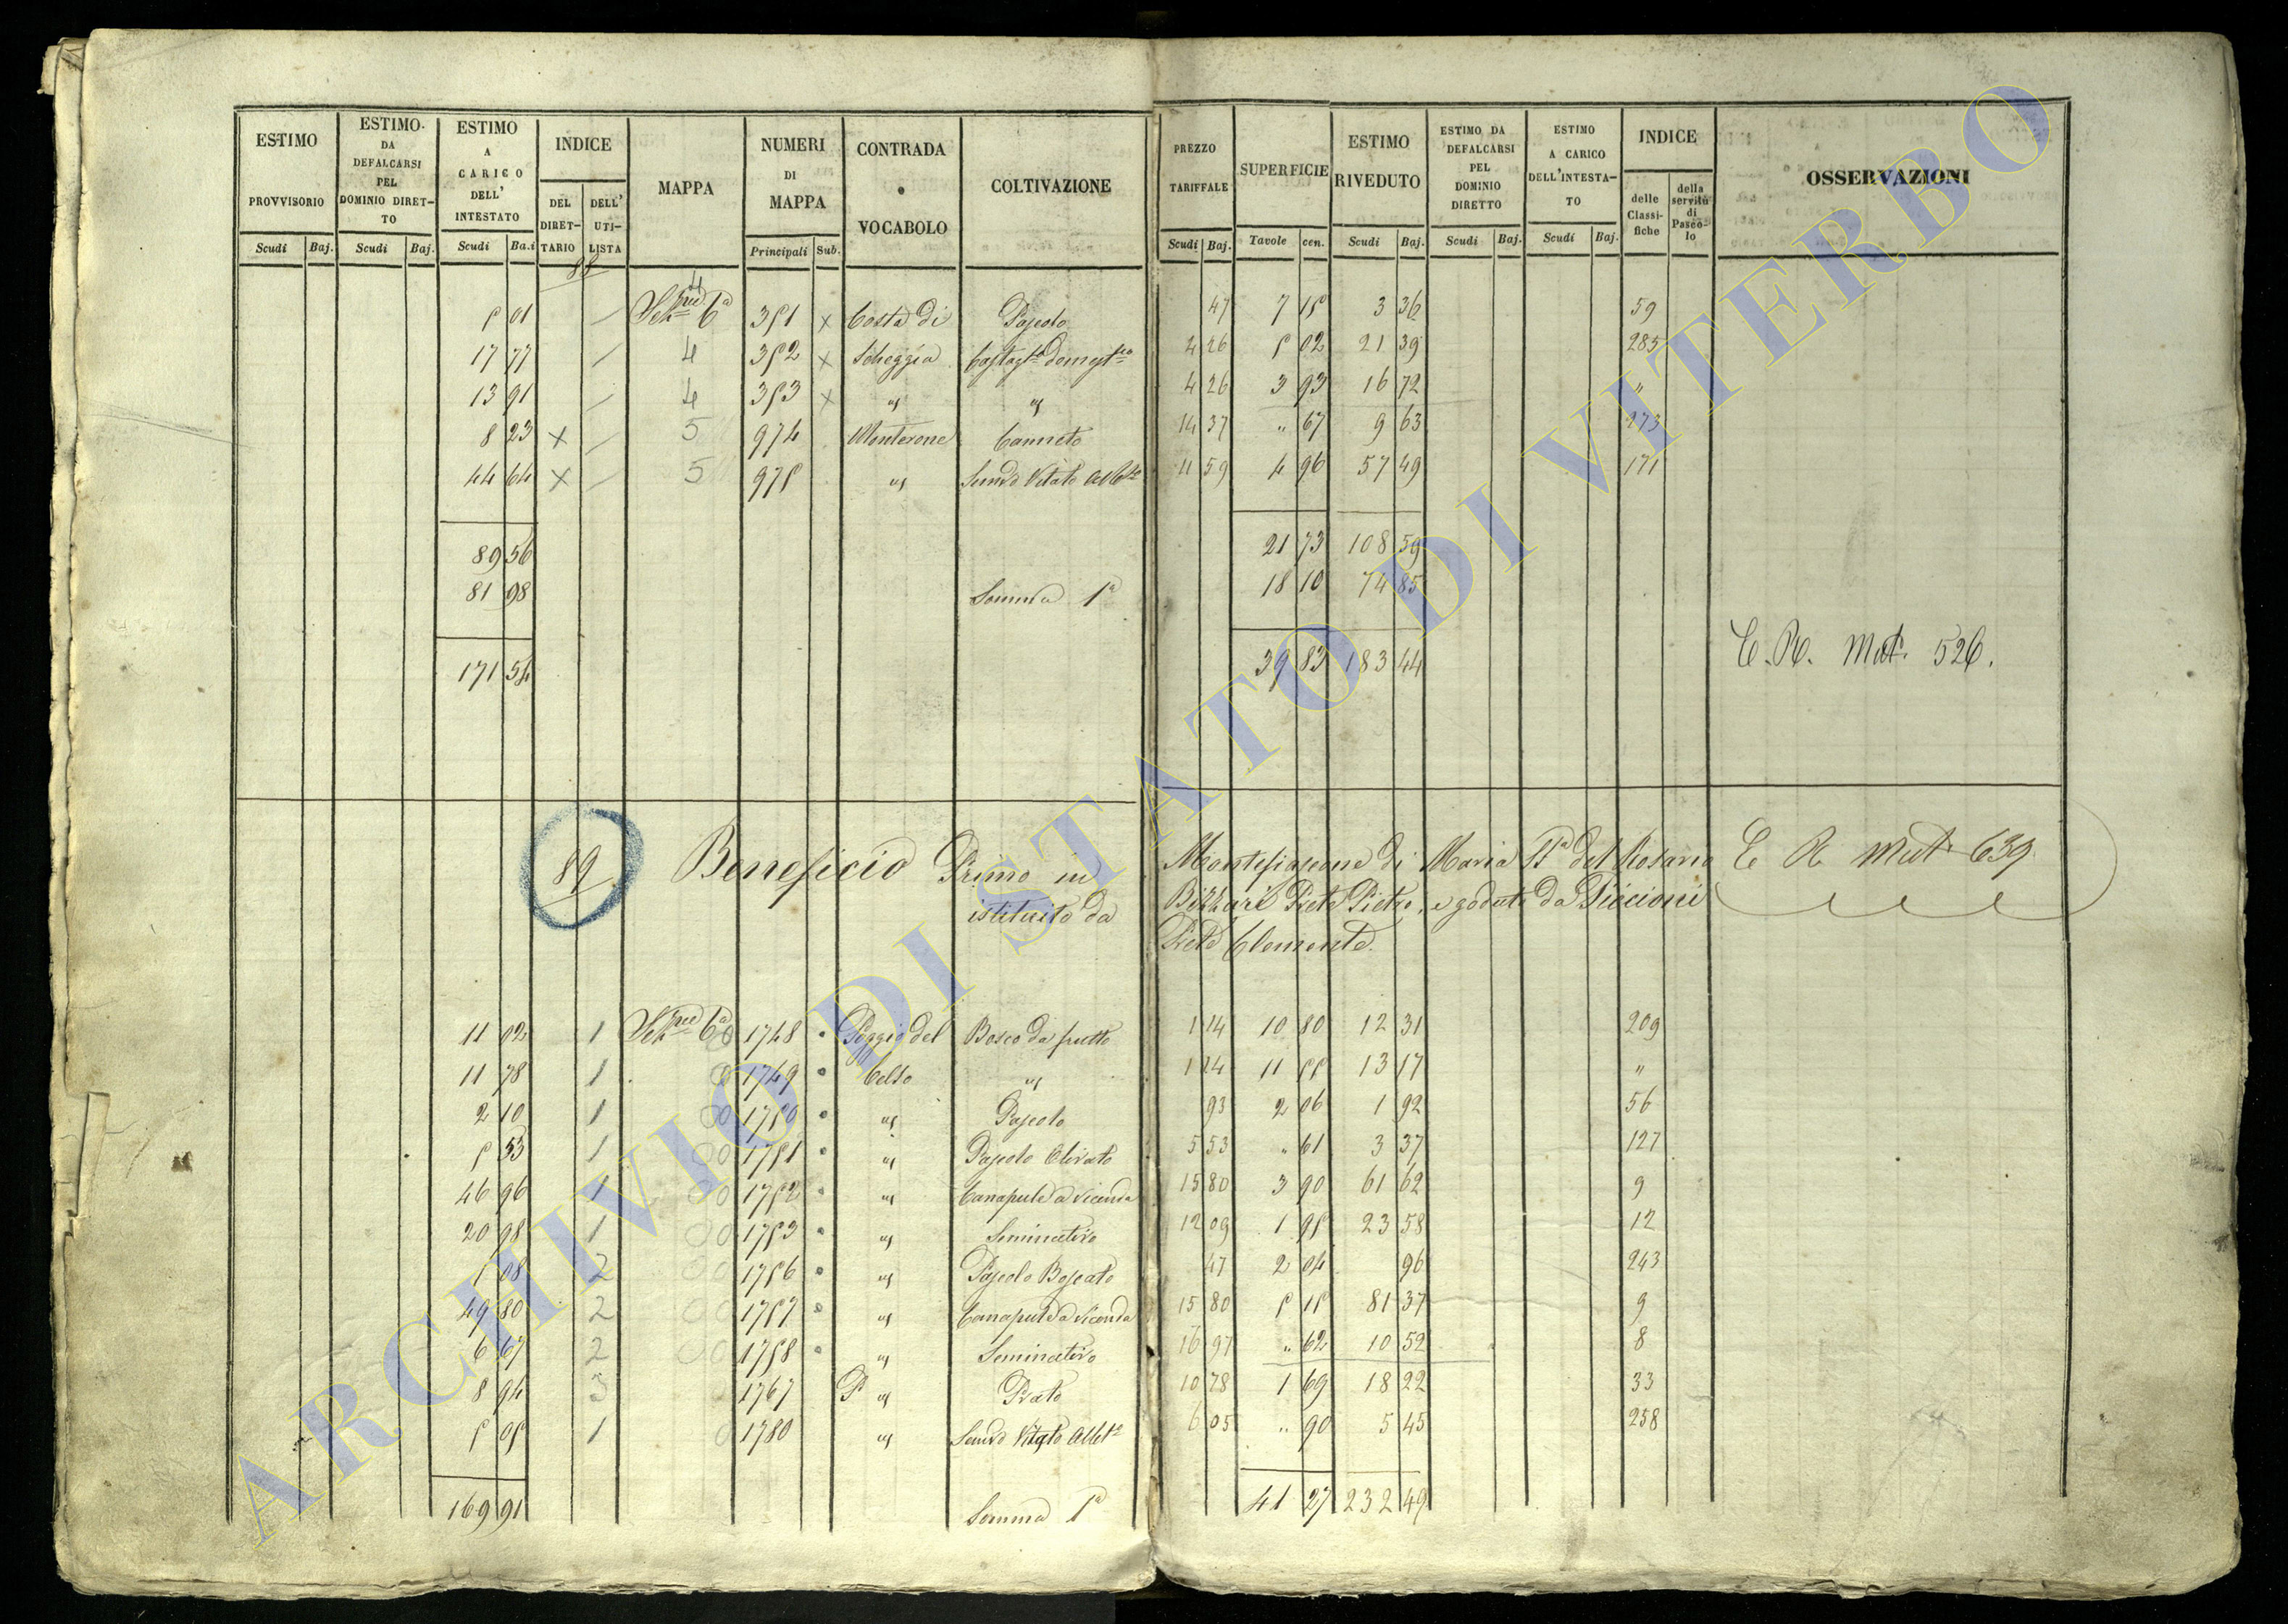 ESTIMO PROVVISORIO | ESTIMO DA DEFALCARSI PEL DOMINIO DIRET-TO | ESTIMO A CARICO DELL' INTESTATO | INDICE | MAPPA | NUMERI DI MAPPA | CONTRADA o VOCABOLO | COLTIVAZIONE | PREZZO TARIFFALE | SUPERFICIE | ESTIMO RIVEDUTO | ESTIMO DA DEFALCARSI PEL DOMINIO DIRETTO | ESTIMO A CARICO DELL'INTESTA-TO | INDICE | OSSERVAZIONI
DEL DIRET-TARIO | DELL' UTI-LISTA | delle Classi-fiche | della servitù di Pasco-lo
Scudi | Baj. | Scudi | Baj. | Scudi | Ba.i | Principali | Sub. | Scudi | Baj. | Tavole | cen. | Scudi | Baj. | Scudi | Baj. | Scudi | Baj.
88
5 01 | 4 | 6a | 351 x | Costa di | Pascolo | 47 | 7 15 | 3 36 | 59
17 77 | 4 | 352 x | Scheggia | 4 26 | 5 02 | 21 39 | 285
13 91 | 4 | 353 x | " | " | 4 26 | 3 93 | 16 72 | "
8 23 | x | 5 | 974 | Monterone | Canneto | 14 37 | " 67 | 9 63 | 273
44 64 | x | 5 | 975 | " | Semvo Vitato Albto | 11 59 | 4 96 | 57 49 | 171
89 56 | 21 73 | 108 59
81 98 | Somma 1a | 18 10 | 74 85
171 54 | 39 83 | 183 44 | E. R. Mut. 526.
89 | Beneficio Primo in Montefiascone di Maria SSa del Rosario | E R Mut 639
istituito da Prete Pietro, e goduto da Piccioni
Prete Clemente.
11 02 | 1 | 6a | 1748 | Poggio del | Bosco da frutto | 1 14 | 10 80 | 12 31 | 209
11 78 | 1 | 1749 | Celso | " | 1 14 | 11 55 | 13 17 | "
2 10 | 1 | 1750 | " | Pascolo | 93 | 2 06 | 1 92 | 56
5 53 | 1 | 1751 | " | Pascolo Olivato | 5 53 | " 61 | 3 37 | 127
46 96 | 1 | 1752 | " | Canapule a vicenda | 15 80 | 3 90 | 61 62 | 9
20 98 | 1 | 1753 | " | Seminativo | 12 09 | 1 95 | 23 58 | 12
1 08 | 2 | 1756 | " | Pascolo Boscato | 47 | 2 04 | 96 | 243
49 80 | 2 | 1757 | " | Canapule a vicenda | 15 80 | 5 15 | 81 37 | 9
6 67 | 2 | 1758 | " | Seminativo | 16 97 | " 62 | 10 52 | 8
8 94 | 3 | 1767 | P " | Prato | 10 78 | 1 69 | 18 22 | 33
5 05 | 1 | 1780 | " | Semvo Vitato Albto | 6 05 | " 90 | 5 45 | 258
169 91 | Somma 1a | 41 27 | 232 49
ARCHIVIO DI STATO DI VITERBO